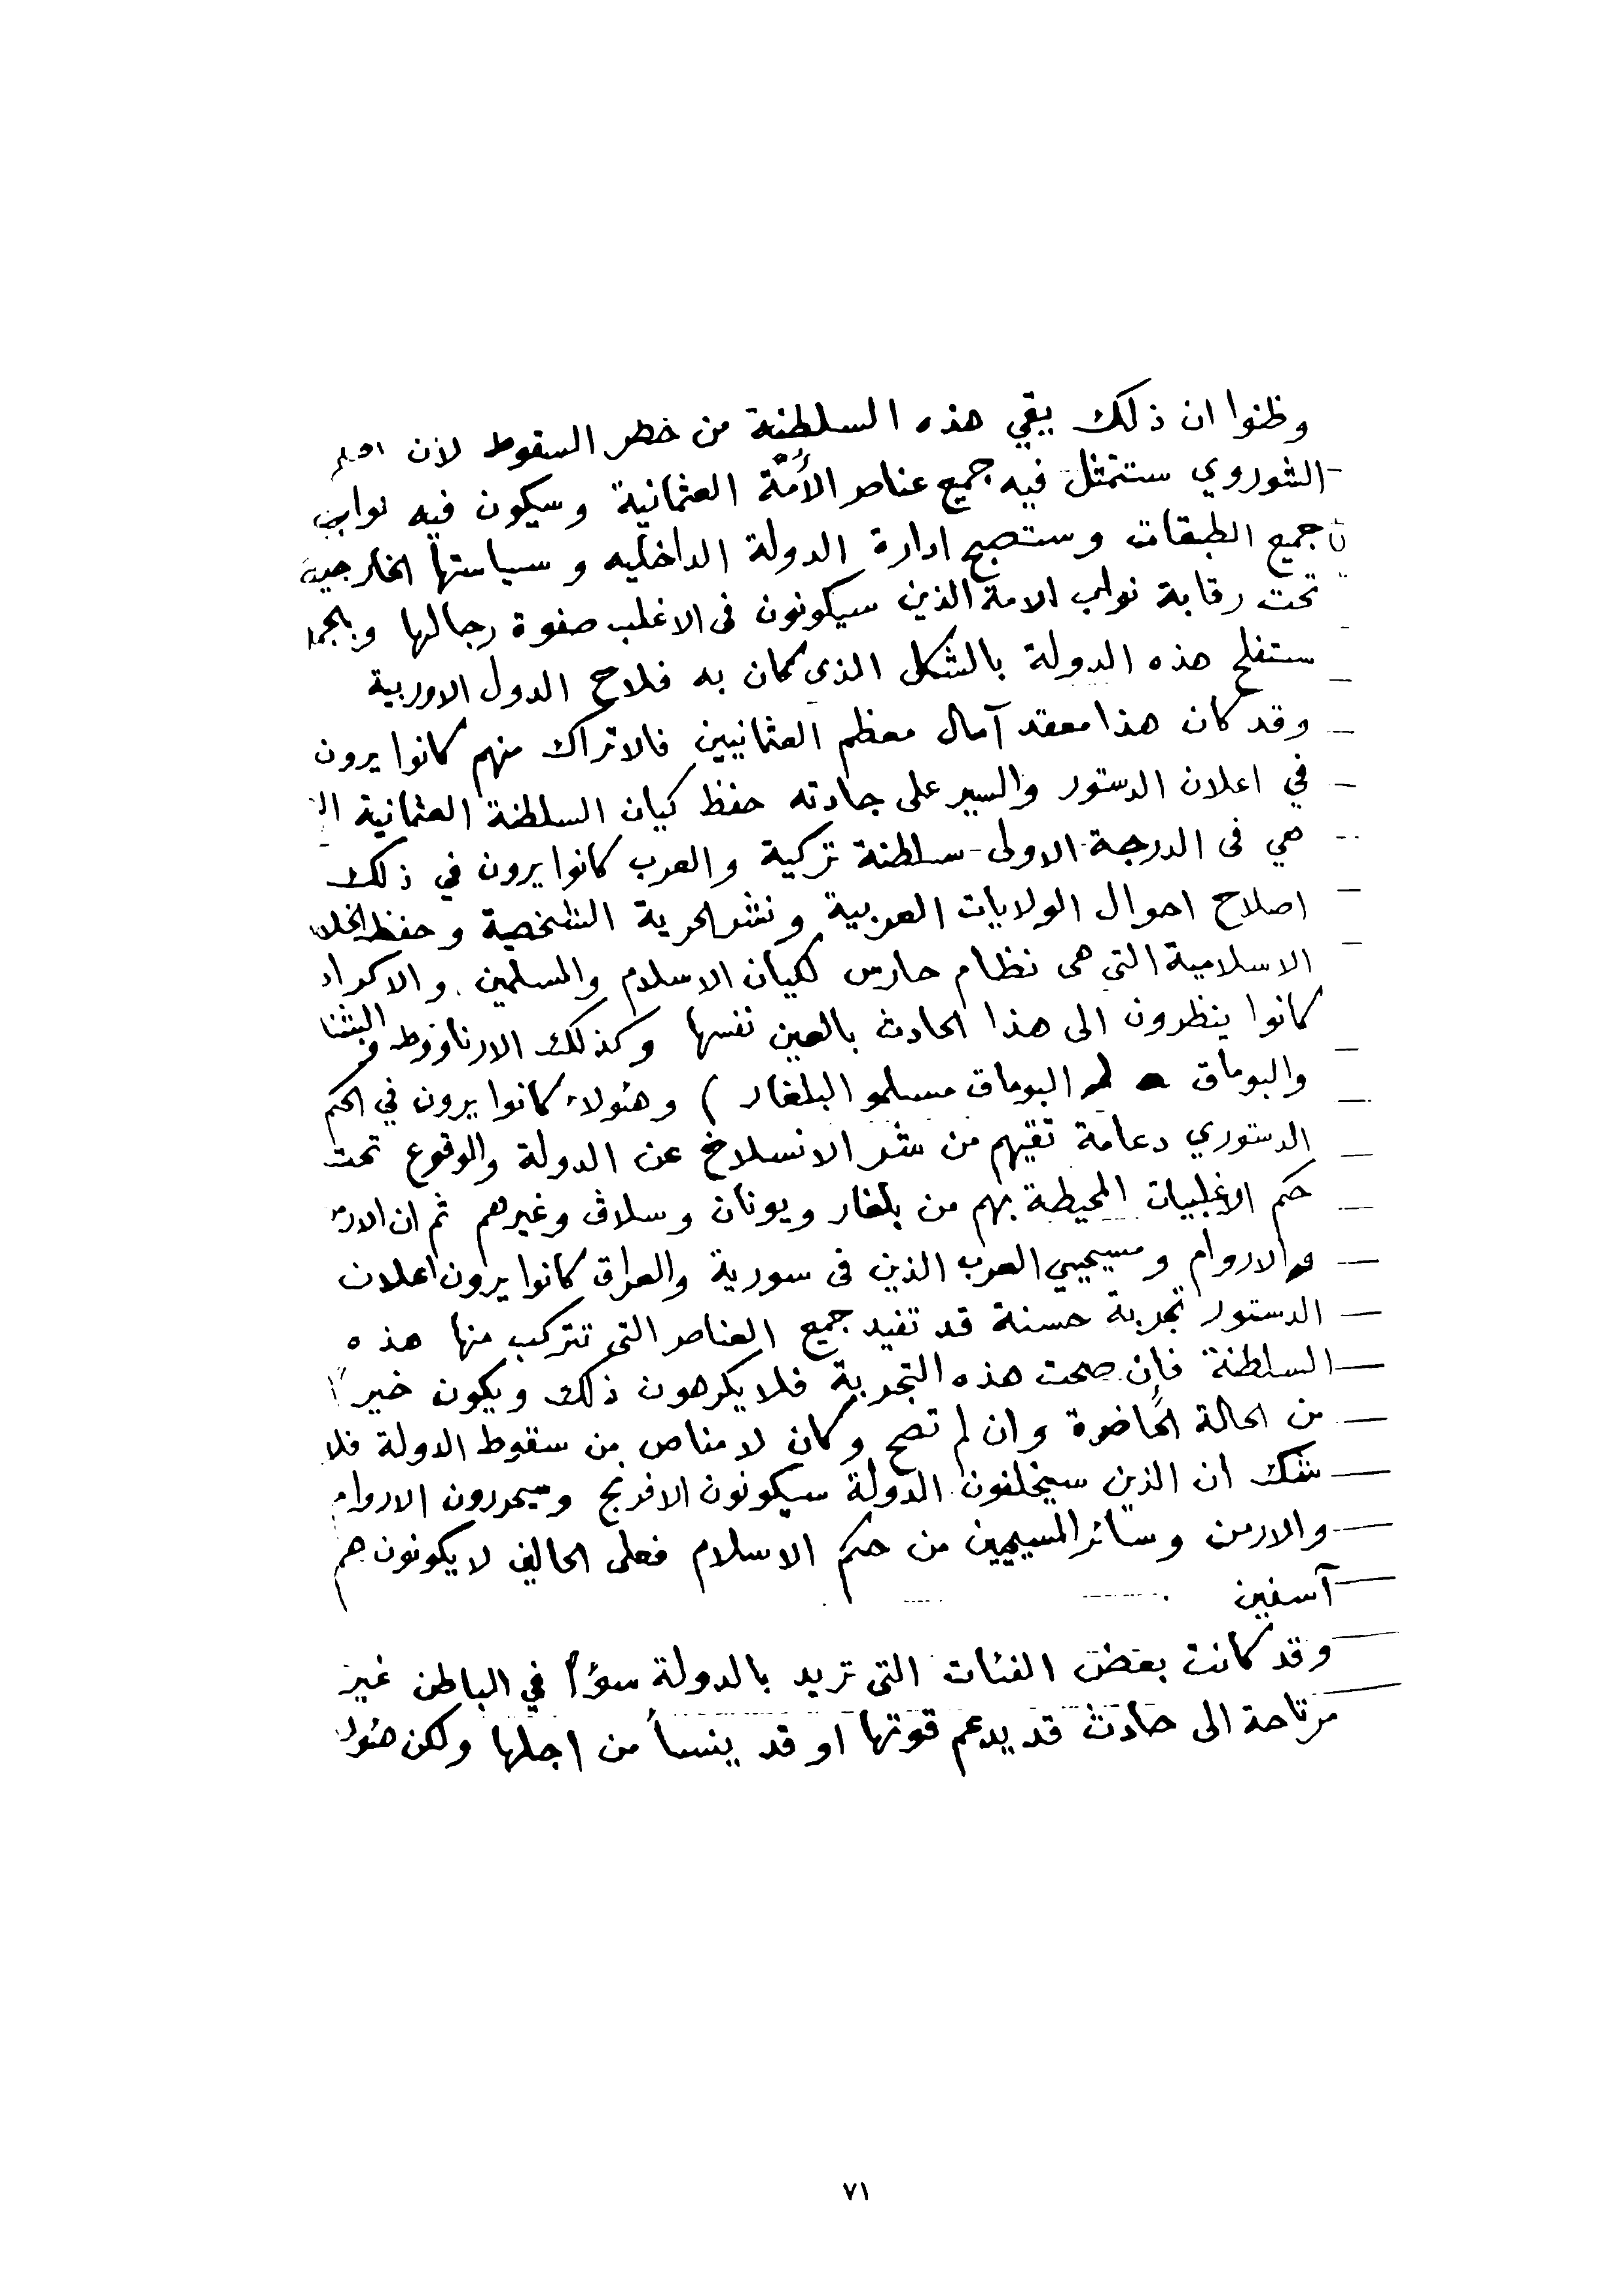 وظنوا ان ذلك يقي هذه السلطنة من خطر السقوط لان
الشوروي ستتمثل فيه جميع عناصر الأمّة العثمانية وسيكون فيه نواب
جميع الطبقات وستصبح ادارة الدولة الداخليه وسياستها الخارجية
تحت رقابة نواب الامة الذين سيكونون فى الاغلب صفوة رجالها
ستفلح هذه الدولة بالشكل الذى كان به فلاح الدول الاوربية
وقد كان هذا معقد آمال معظم العثمانيين فالاتراك منهم كانوا يرون
في اعلان الدستور والسير على جادته حفظ كيان السلطنة العثمانية
هي فى الدرجة الاولى سلطنة تركية والعرب كانوا يرون في ذلك
اصلاح احوال الولايات العربية ونشر الحرية الشخصية وحفظ
الاسلامية التى هى نظام حارس لكيان الاسلام والمسلمين والاكراد
كانوا ينظرون الى هذا الحادث بالعين نفسها وكذلك الارناووط
والبوماق البوماق مسلمو البلغار ) وهئولاء كانوا يرون في الحكم
الدستوري دعامة تقيهم من شر الانسلاخ عن الدولة والوقوع تحت
حكم الاغلبيات المحيطة بهم من بلغار ويونان وسلاف وغيرهم ثم ان
والاروام ومسيحيي العرب الذين فى سورية والعراق كانوا يرون اعلان
الدستور تجربة حسنة قد تفيد جميع العناصر التى تتركب منها هذه
السلطنة فإن صحت هذه التجربة فلا يكرهون ذلك ويكون خيراً
من الحالة الحاضرة وان لم تصح وكان لا مناص من سقوط الدولة فلا
شك ان الذين سيخلفون الدولة سيكونون الافرنج وسيحررون الاروام
والارمن وسائر المسيحيين من حكم الاسلام فعلى الحالين لا يكونون هم
آسفين
وقد كانت بعض الفئات التى تريد بالدولة سوًأ في الباطن غير
مرتاحة الى حادث قد يدعم قوتها او قد ينسأ من اجلها ولكن
٧١